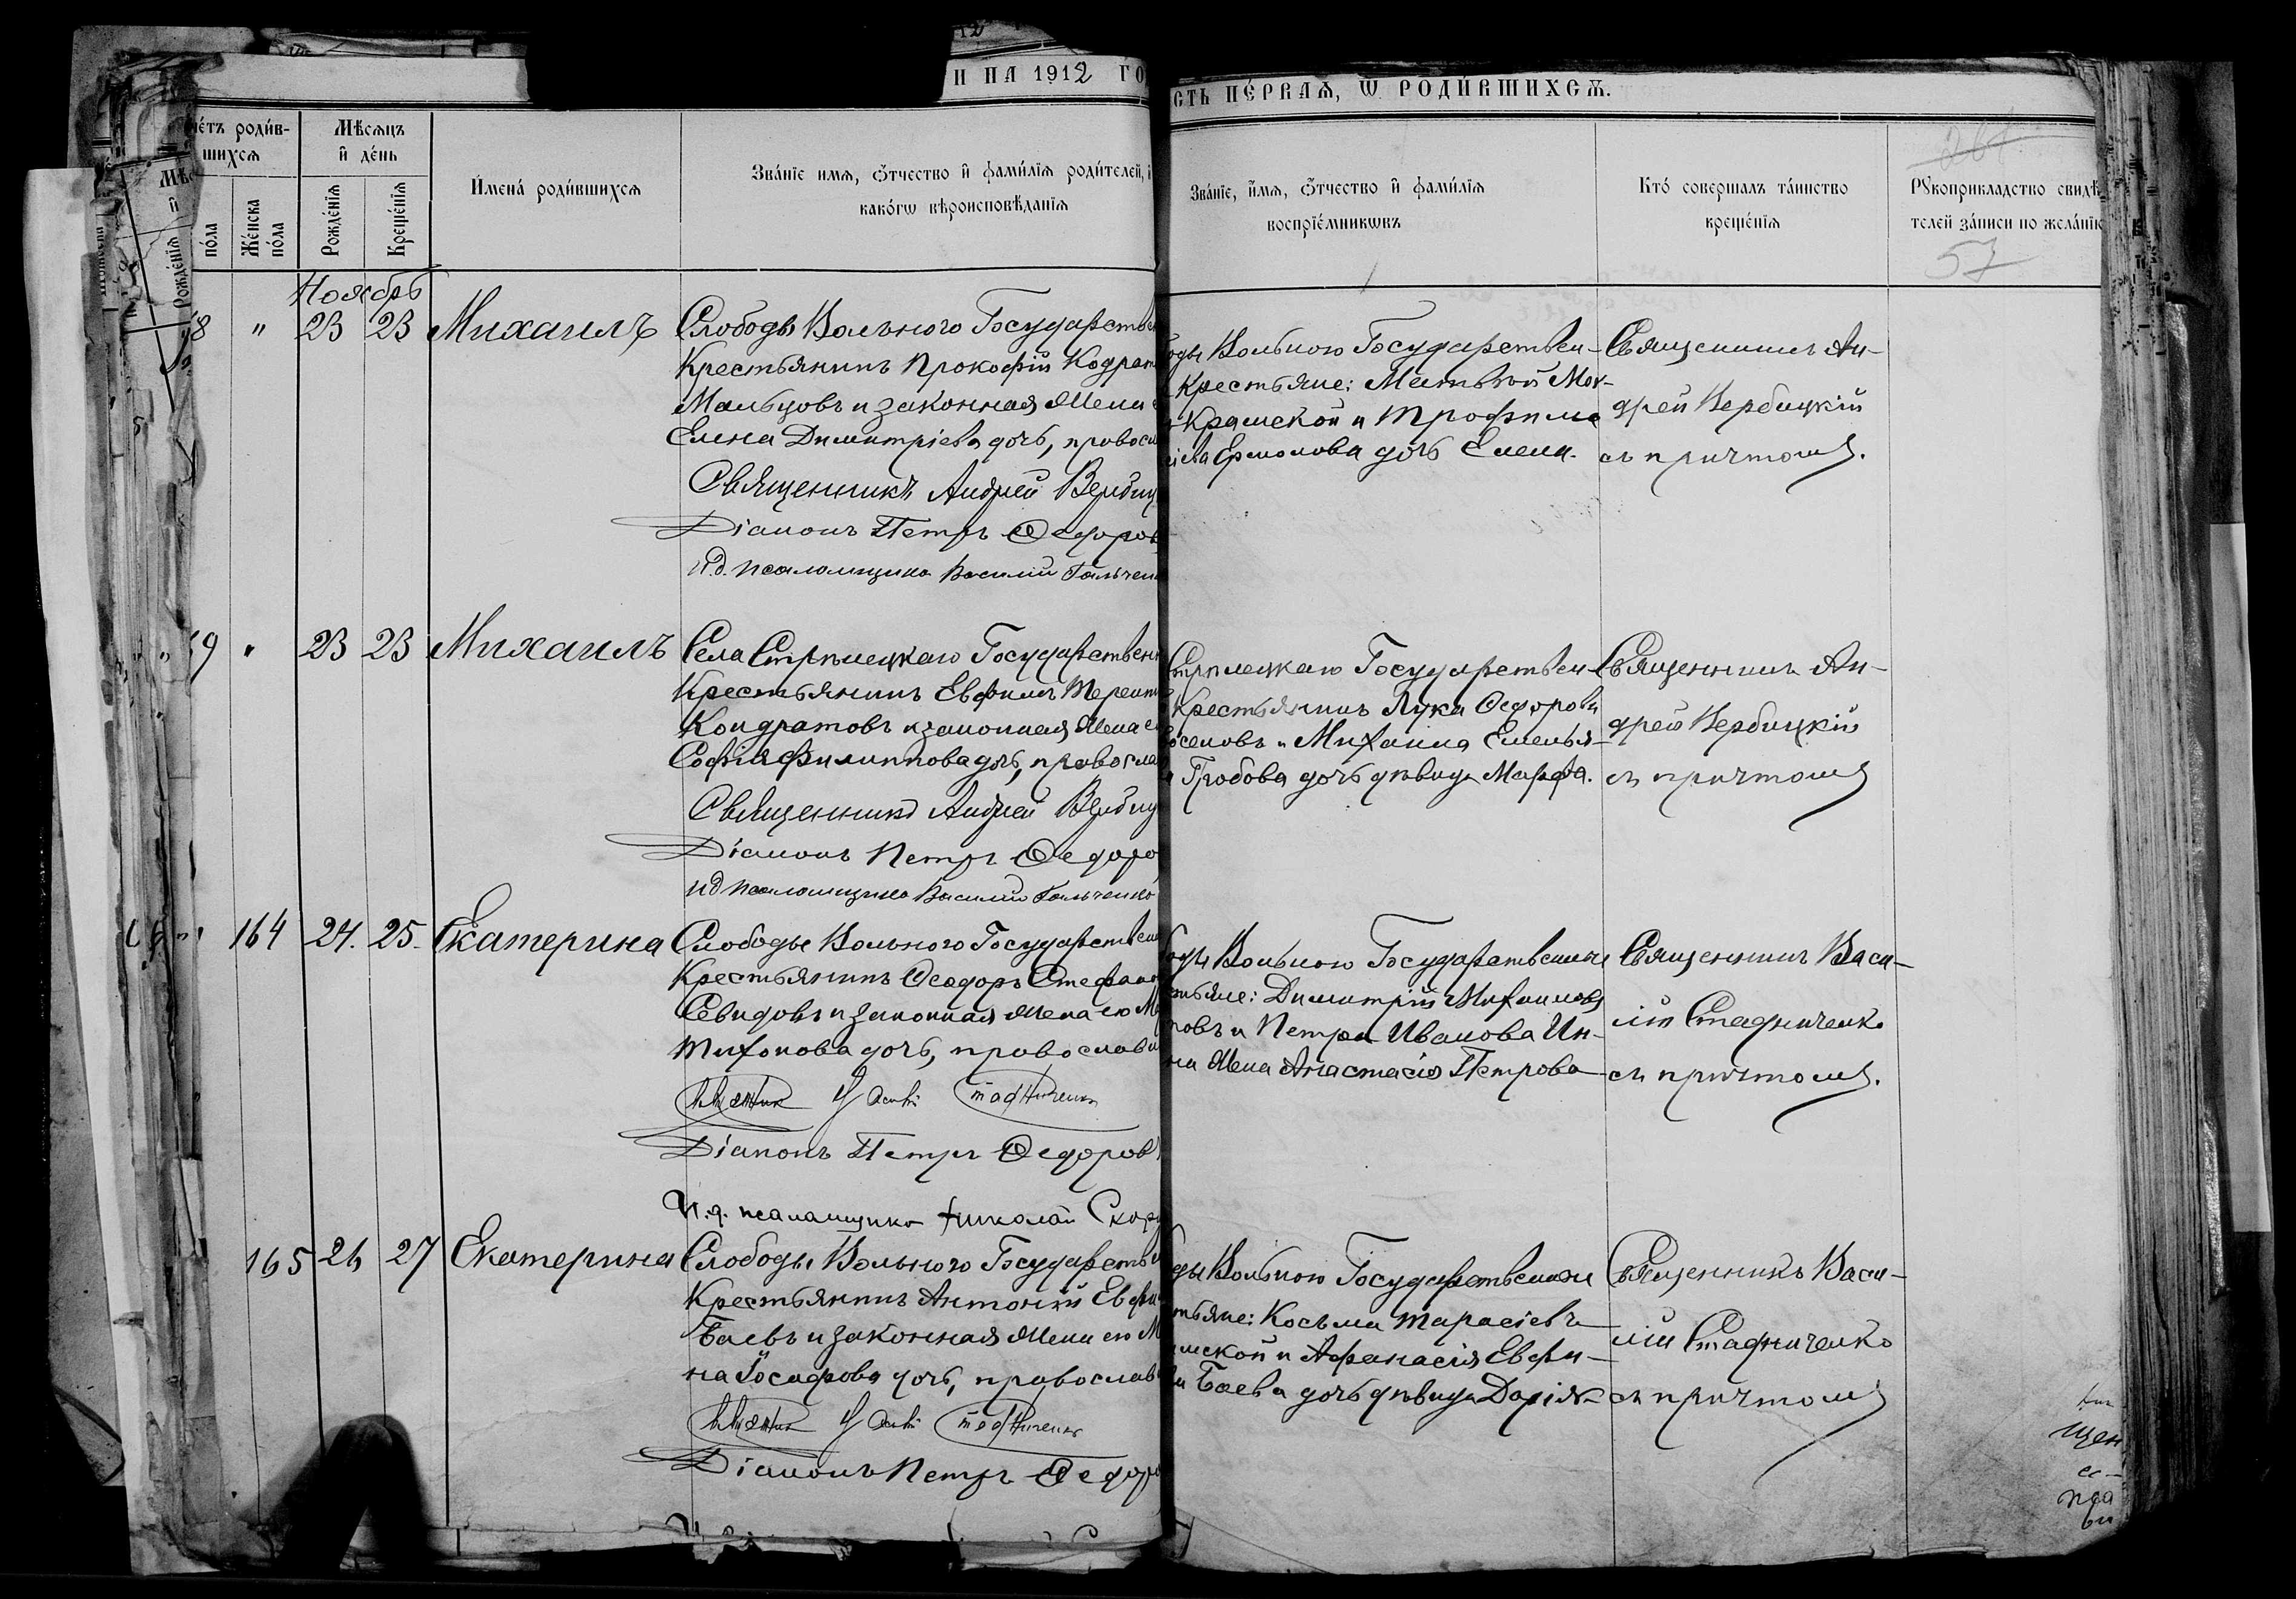 И НА 1912 ГО
СТЬ ПЕ́РВАѦ, Ѿ РОДИ́ВШИХСѦ.
че́тъ роди́в-
шихсѧ
Мѣсѧцъ
и҆ де́нь
по́ла
Же́нска
по́ла
Рожде́нїѧ
Креще́нїѧ
И҆мена̀ роди́вшихсѧ
Зва́нїе имѧ, ѻ҆́тчество и҆ фами́лїѧ роди́телей, и҆
како́гѡ вѣроисповѣ́данїѧ
Зва́нїе, и҆́мѧ, ѻ҆́тчество и҆ фами́лїѧ
воспрїе́мникѡвъ
Кто̀ соверша́лъ та́инство
креще́нїѧ
Рꙋкоприкладство свидѣ́
телей за́писи по жела́нїю
57
Ноябрь
8 " 23 23 Михаилъ
Слободы Вольного Государствен
Крестьянинъ Прокофій Кодрат
Мальцовъ и законная жена е
Елена Димитріева дочь, правосл
Священникъ Андрей Вербиц
Діаконъ Петръ Ѳедоров
И.д. псаломщика Василій Гальчен
оды Вольного Государствен-
Крестьяне: Матвѣй
Крамской и Трофима
іева Ермолова дочь Елена.
Священникъ Ан-
дрей Вербицкій
съ причтомъ.
9 " 23 23 Михаилъ
Села Стрѣлецкаго Государственн
Крестьянинъ Евфимъ Терент
Кондратовъ и законная жена е
Софія Филиппова дочь, правосла
Священникъ Андрей Вербиц
Діаконъ Петръ Ѳедоро
И д псаломщика Василій Гальченко
Стрѣлецкаго Государствен-
Крестьянинъ Лука Ѳедоров
и Михаила Емелья-
Гробова дочь дѣвица Марфа.
Священникъ Ан-
дрей Вербицкій
съ причтомъ
" 164 24. 25. Екатерина
Слободы Вольного Государствен
Крестьянинъ Ѳеодоръ Стефано
Севидовъ и законная жена его М
Тихонова дочь, православ
Священник Василій Стадниченко
Діаконъ Петръ Ѳедоровъ
И.д. псаломщика Николай Скор
оды Вольного Государственные
тьяне: Димитрій Михаиловъ
новъ и Петра Иванова Ин-
на жена Анастасія Петрова
Священникъ Васи-
лій Стадниченко
съ причтомъ.
165 26 27 Екатерина
Слободы Вольного Государстве
Крестьянинъ Антоній Евфи
Баевъ и законная жена его М
на Іосифова дочь, православ
Священник Василій Стадниченко
Діаконъ Петръ Ѳедоро
оды Вольного Государственные
тьяне: Косьма Тарасіевъ
мской и Афанасія Евфи-
Баева дочь дѣвица Дарія
Священникъ Васи-
лій Стадниченко
съ причтомъ
щен